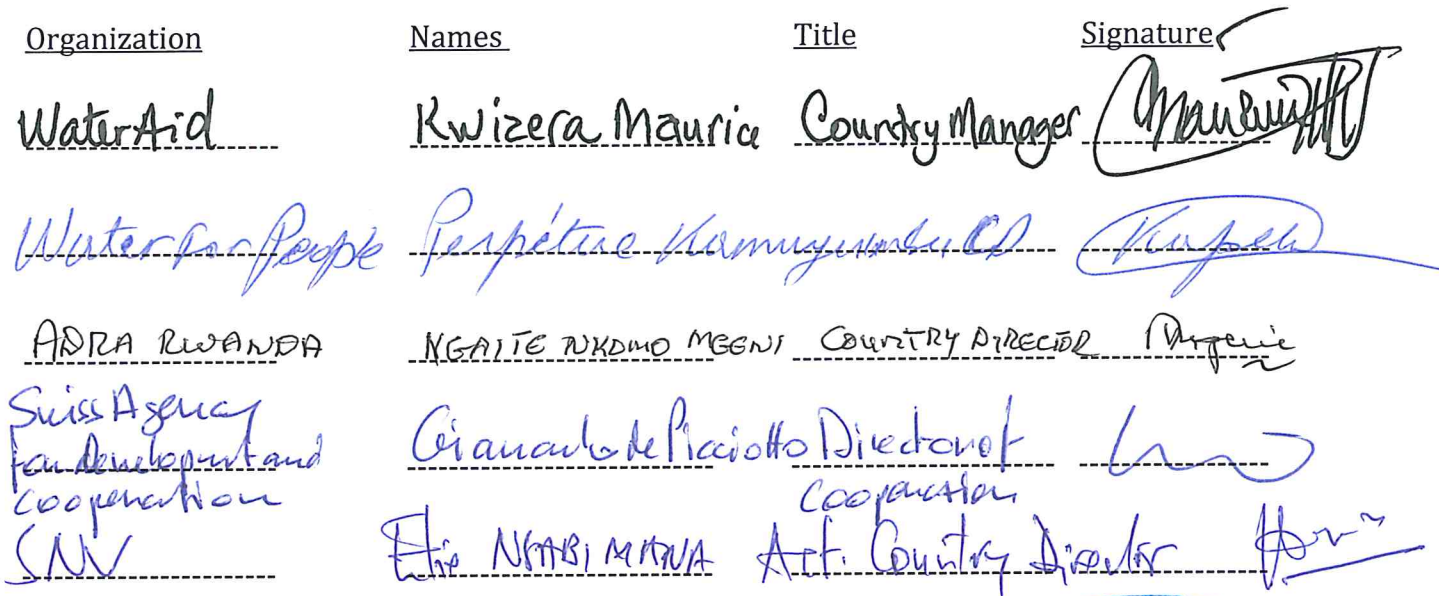 Organization Names Title Signature
WaterAid Kwizera Maurice Country Manager
Water For People Perpétue CD
ADRA RWANDA NGAITE NKOMO MEENI COUNTRY DIRECTOR
Swiss Agency
for Development and Giancarlo de Picciotto Director of
cooperation cooperation
SNV NSABIMANA Act. Country Director